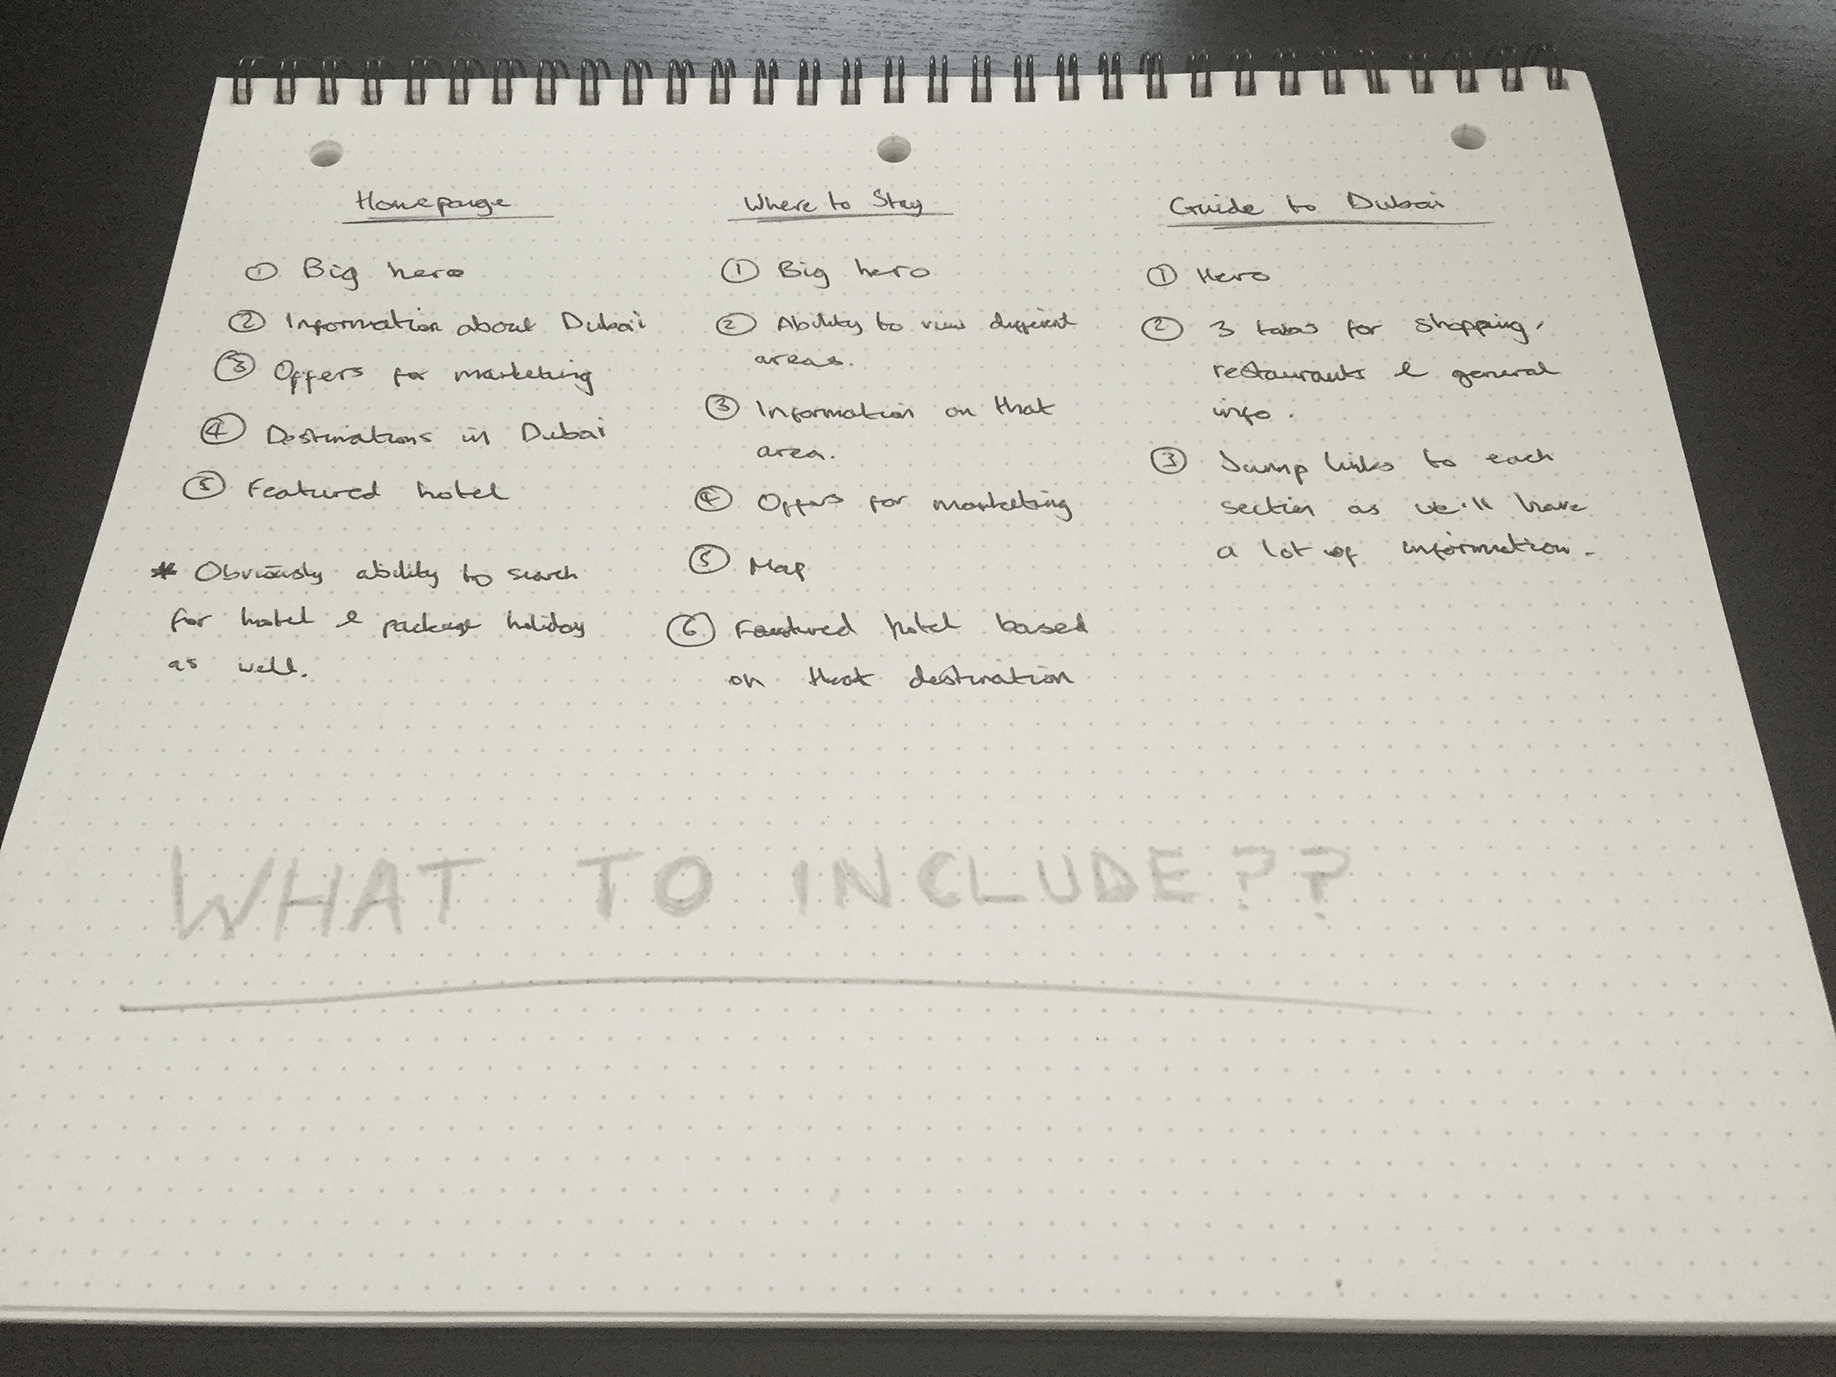 Homepage
① Big hero
② Information about Dubai
③ Offers for marketing
④ Destinations in Dubai
⑤ Featured hotel
* Obviously ability to search
for hotel & package holiday
as well.
Where to Stay
① Big hero
② Ability to view different
areas.
③ Information on that
area.
④ Offers for marketing
⑤ Map
⑥ Featured hotel based
on that destination
Guide to Dubai
① Hero
② 3 tabs for shopping,
restaurants & general
info.
③ Jump links to each
section as we'll have
a lot of information.
WHAT TO INCLUDE??